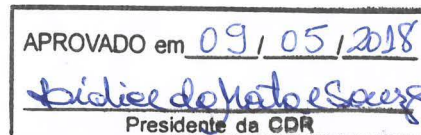 APROVADO em 09 / 05 / 2018
Lídice da Mata e Souza
Presidente da CDR